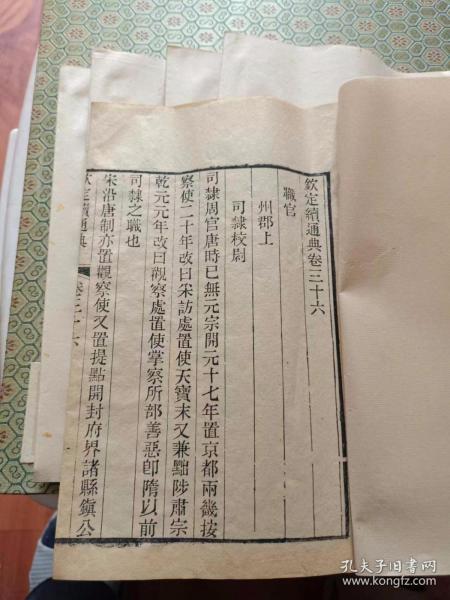 欽定續通典卷三十六
職官
州郡上
司隸校尉
司隸周官唐時已無元宗開元十七年置京都兩畿按
察使二十年改曰采訪處置使天寶末又兼黜陟肅宗
乾元元年改曰觀察處置使掌察所部善惡卽隋以前
司隸之職也
宋沿唐制亦置觀察使又置提點開封府界諸縣鎮公
欽定續通典 卷三十六
孔夫子旧书网
www.kongfz.com